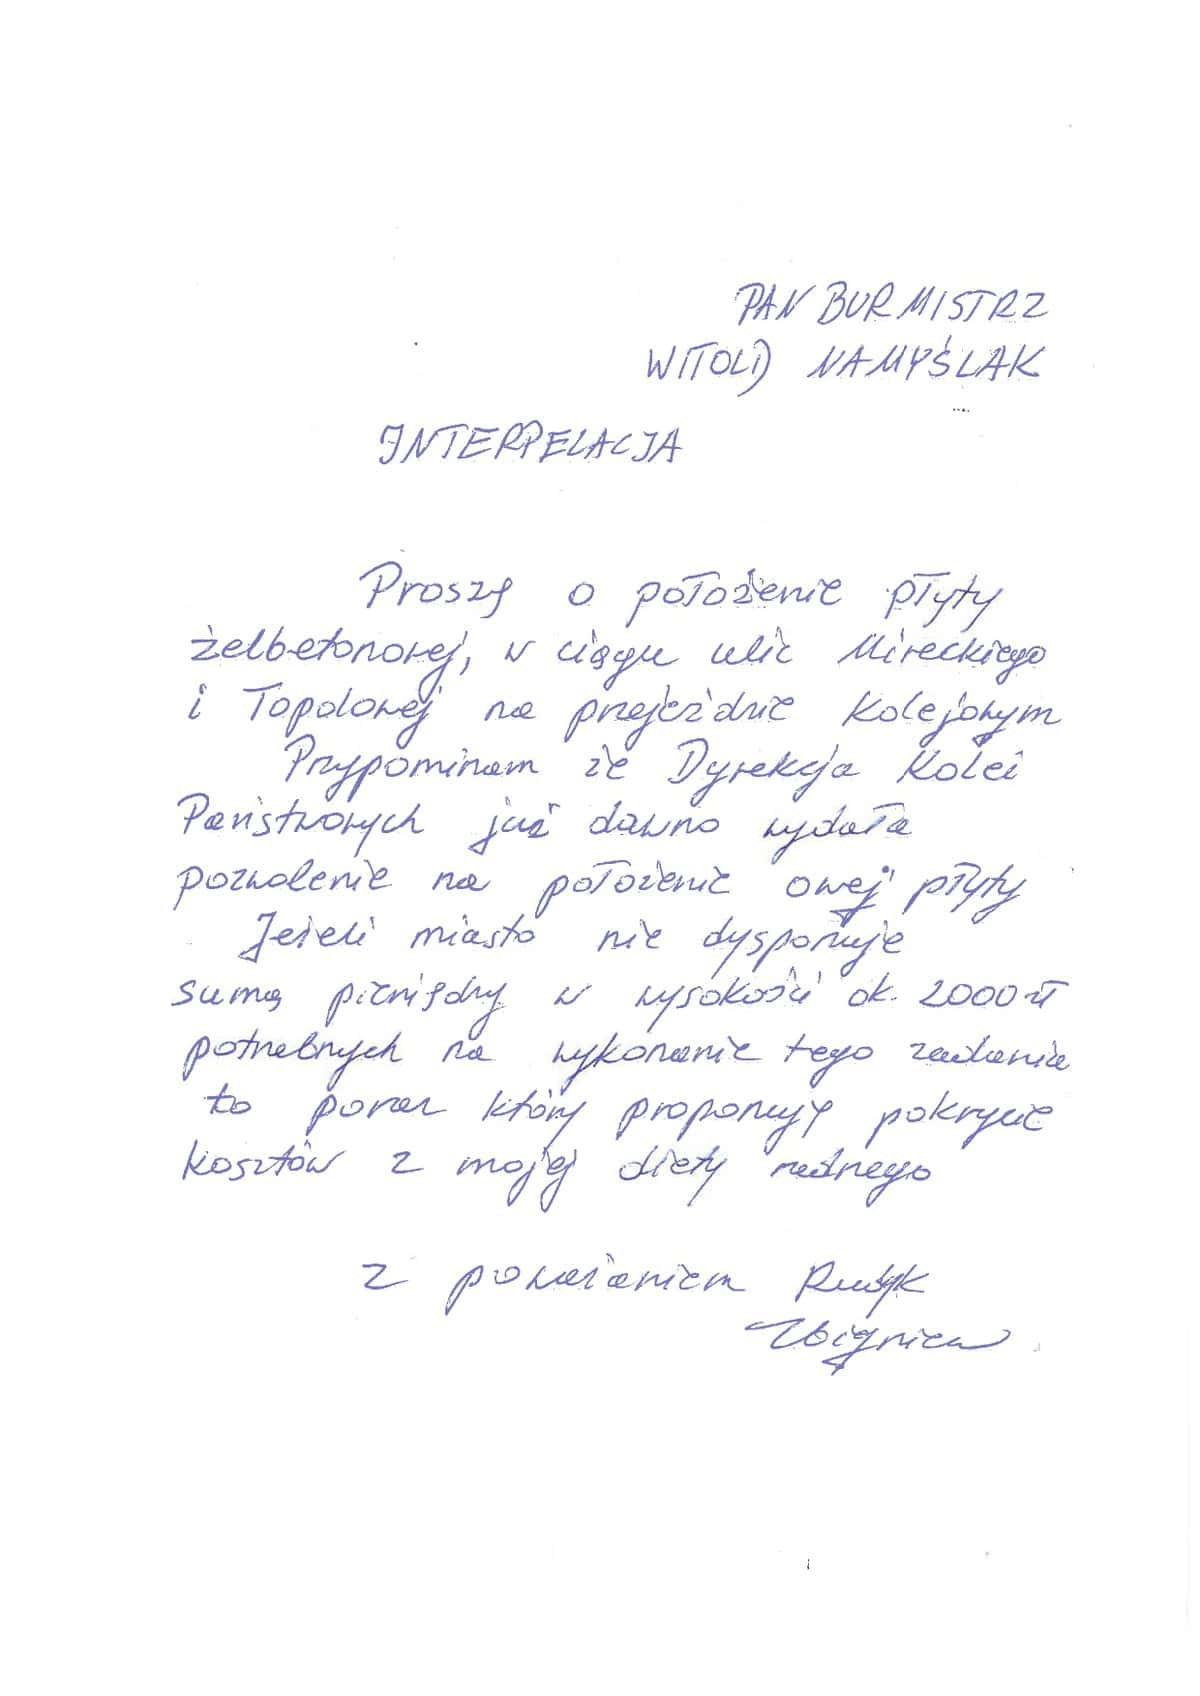 PAN BURMISTRZ
WITOLD NAMYŚLAK
INTERPELACJA
Proszę o położenie płyty
żelbetonowej, w ciągu ulic Mireckiego
i Topolowej na przejeździe kolejowym
Przypominam że Dyrekcja Kolei
Państwowych już dawno wydała
pozwolenie na położenie owej płyty
Jeżeli miasto nie dysponuje
sumą pieniędzy w wysokości ok. 2000 zł
potrzebnych na wykonanie tego zadania
to poraz który proponuję pokrycie
kosztów z mojej diety radnego
z poważaniem Rudyk
Zbigniew